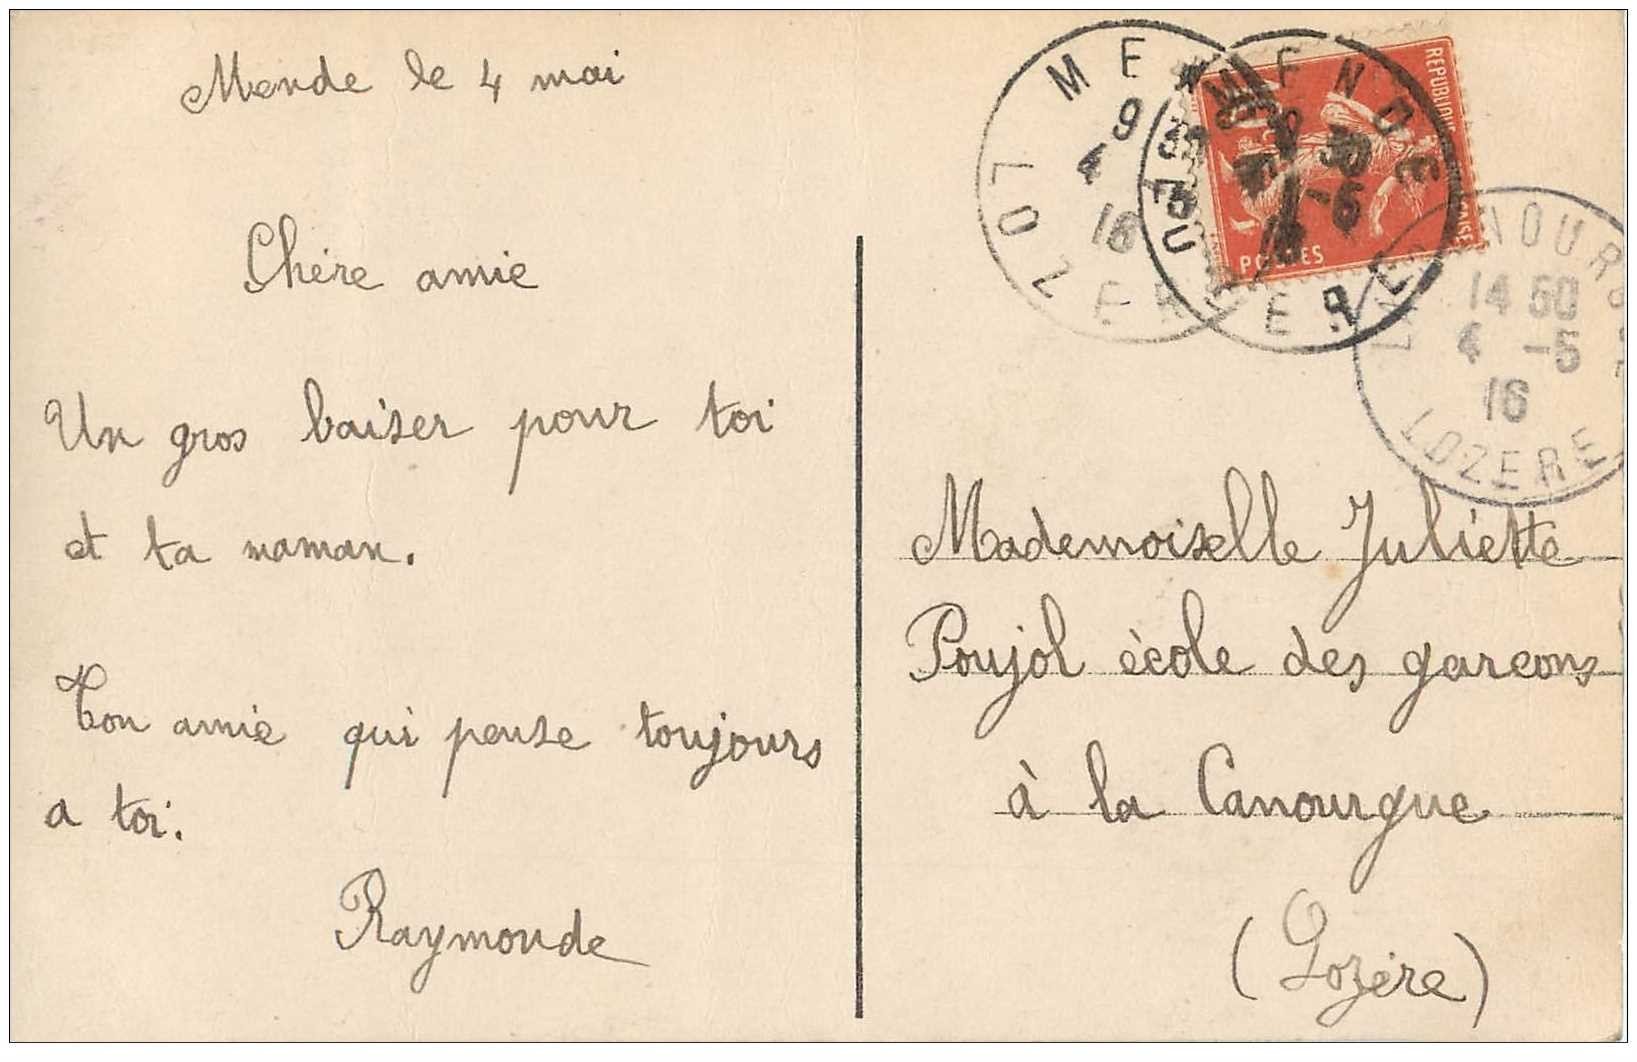 Mende le 4 mai
Chère amie
Un gros baiser pour toi
et ta maman.
Ton amie qui pense toujours
a toi.
Raymonde
MENDE
9 30
4 -5
16
LOZERE
REPUBLIQUE FRANÇAISE
POSTES
LA CANOURGUE
14 50
4 -5
16
LOZERE
Mademoiselle Juliette
Poujol école des garcons
à la Canourgue
(Lozère)